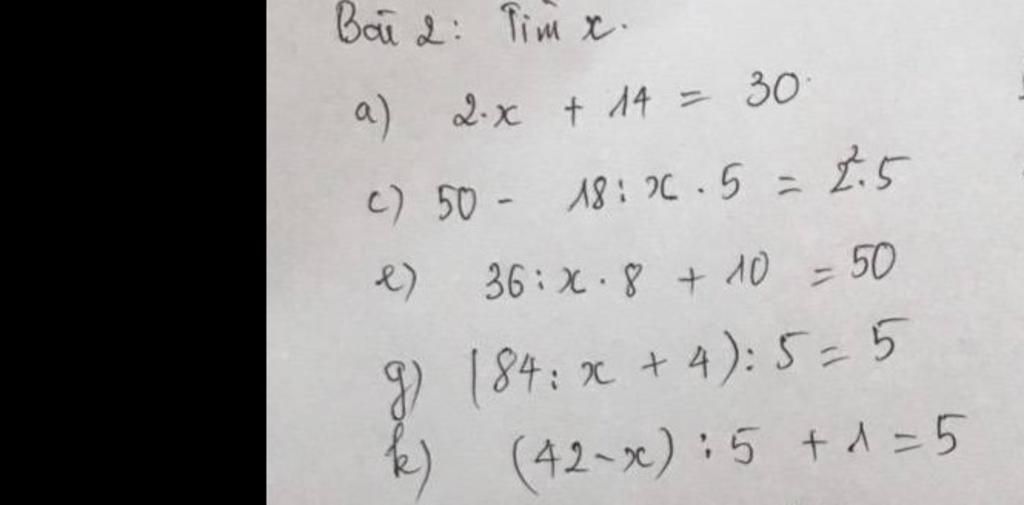 Bài 2: Tìm x.
a) 2.x + 14 = 30
c) 50 - 18 : x . 5 = 2².5
e) 36 : x . 8 + 10 = 50
g) (84 : x + 4) : 5 = 5
k) (42 - x) : 5 + 1 = 5